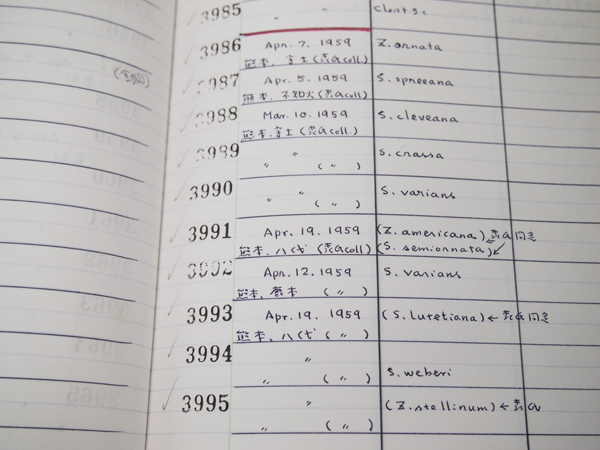 3985 " "
3986 Apr. 7. 1959 Z. ornata
熊本. 宇土 (表a coll.)
3987 Apr. 5. 1959 S. spreeana
熊本. 不知火 (表a coll.)
3988 Mar. 10. 1959 S. cleveana
熊本. 宇土 (表a coll.)
3989 " S. crassa
" ( " )
3990 " " S. varians
" ( " )
3991 Apr. 19. 1959 (Z. americana) 表a 同定
熊本. 八代 (表a coll.) (S. semiornata)
3992 Apr. 12. 1959 S. varians
熊本. ( " )
3993 Apr. 19. 1959 (S. lutetiana) ← 表a 同定
熊本. 八代 ( " )
3994 "
" ( " ) S. weberi
3995 " (Z. stellinum) ← 表a
" ( " )